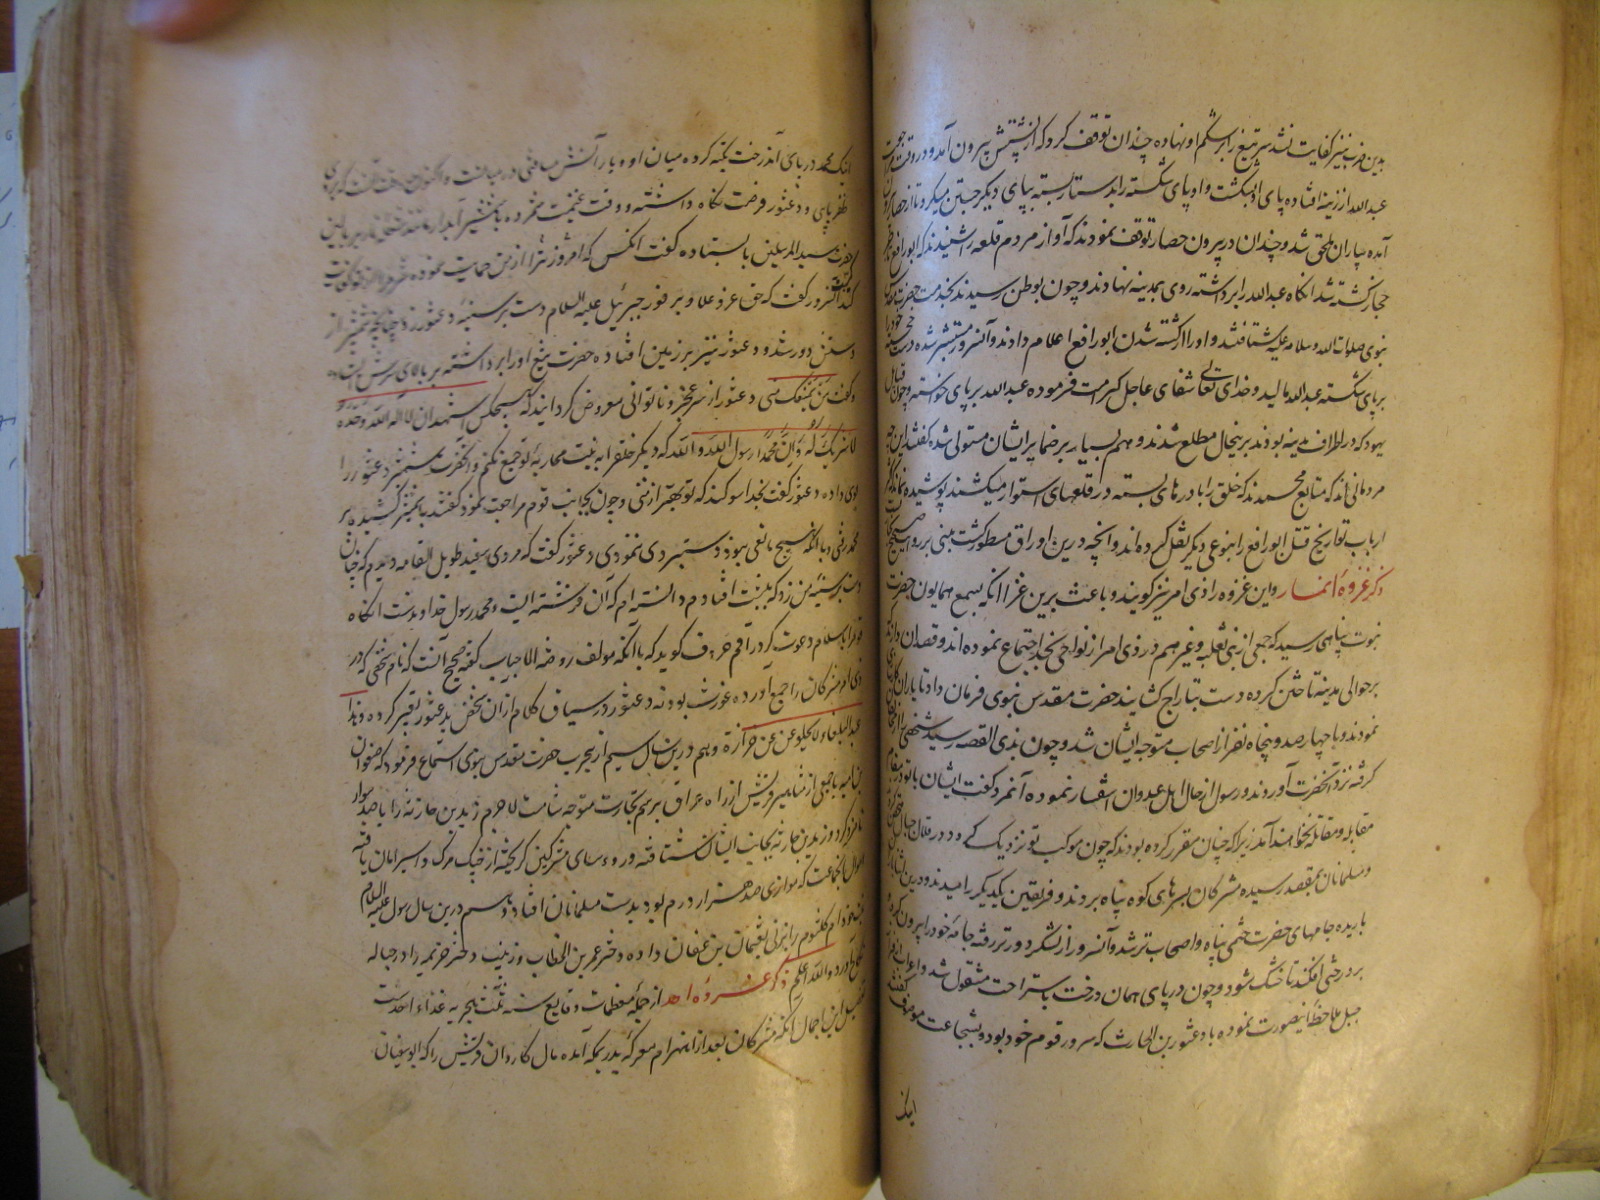 بدین ضرب نیز کفایت نشد سر تیغ را بر شکم او نهاده چندان توقف کرد که از پشتش بیرون آمد و در وقت
عبدالله از زینه افتاده پای او بشکست و او پای شکسته را بدستار بسته بپای دیگر جستن میکرد تا از حصار
آمده بیاران ملحق شد و چندان در بیرون حصار توقف نمودند که آواز مردم قلعه را شنیدند که ابو رافع
حجاز کشته شد انکاه عبدالله را برداشته روی بمدینه نهادند و چون بوطن رسیدند بخدمت حضرت
نبوی صلوات الله وسلامه علیه شتافتند و او را از کشته شدن ابو رافع اعلام دادند و آنسرور مستبشر شده دست
بر پای شکسته عبدالله مالید و خدای تعالی شفای عاجل کرامت فرموده عبدالله بر پای خواسته و چون
یهود که در اطراف مدینه بودند برینحال مطلع شدند و هم بسیار بر ضمایر ایشان مستولی شده گفتند این
مردمانی اند که متابع محمدند که خلق را با درهای بسته در قلعهای استوار میکشند پوشیده نماند که
ارباب تواریخ قتل ابو رافع را بنوعی دیگر نقل کرده اند و آنچه درین اوراق مسطور گشت مبنی بر روایت
ذکر غزوه انمار و این غزوه را ذی امر نیز گویند و باعث برین غزا آنکه بسمع همایون حضرت
نبوت پناهی رسید که جمعی از بنی ثعلبه و غیرهم در ذی امر از نواحی نجد اجتماع نموده اند و قصد آن دارند که
بر حوالی مدینه تاختن کرده دست بتاراج کشایند حضرت مقدس نبوی فرمان داد تا یاران
نمودند و با چهارصد و پنجاه نفر از اصحاب متوجه ایشان شد و چون بذی القصه رسید شخصی را
گرفته نزد آنحضرت آوردند و رسول از حال اهل عدوان استفسار نموده آنمرد گفت ایشان با تو در مقام
مقابله و مقاتله نخواهند آمد زیرا که چنان مقرر کرده بودند که چون موکب تو نزدیک رسد در قلال جبال
و مسلمانان بمقصد رسیده مشرکان بسرهای کوه پناه بردند و فریقین یکدیگر را میدیدند و درین اثنا
باریده جامهای حضرت ختمی پناه و اصحاب تر شد و آنسرور از لشکر دورتر رفته جامه خود را بیرون کرده
بر درختی افکند تا خشک شود و چون در پای همان درخت باستراحت مشغول شد و اعراب از
جبل ملاحظه اینصورت نموده با دعثور بن الحارث که سرور قوم خود بود و بشجاعت موصوف گفتند
اینک
اینک محمد در پای آن درخت تکیه کرده میان او و یارانش مسافتی
ظفر یابی و دعثور فرصت نگاه داشته و وقت غنیمت شمرده با شمشیر آبدار
حضرت سید المرسلین بایستاده گفت آنکس که امروز ترا از من حمایت نموده
کند آنسرور گفت که حق عز و علا و بر فور جبرئیل علیه السلام دست بر سینه دعثور زد چنانچه شمشیر از
دستش دور شد و دعثور نیز بر زمین افتاده حضرت تیغ او را برداشته بر بالای سرش ایستاده
و گفت من یمنعک منی دعثور از سر عجز و ناتوانی معروض گردانید که هیچکس اشهد ان لا اله الا الله وحده
لا شریک له وان محمدا رسول الله والله که دیگر خلق را به نیت محاربه تو جمع نکنم و آنحضرت شمشیر دعثور را
بوی داده دعثور گفت بخدا سوگند که تو بهتر از منی و چون بجانب قوم مراجعت نمود گفتند با شمشیر کشیده بر
محمد رفتی و با آنکه هیچ مانعی نبود دستبردی ننمودی دعثور گفت که مردی سفید طویل القامه دیدم که چنان
دست بر سینه من زد که بر پشت افتادم دانستم که آن فرشته ایست و محمد رسول خداوندست انکاه
قوم را باسلام دعوت کرد راقم حروف گوید که با آنکه مولف روضه الاحباب گفته صحیح آنست که نام شخصی که در
ذی امر مشرکان را جمع آورده غورث بوده نه دعثور در سیاق کلام از آن شخص بدعثور تعبیر کرده و هذا
عند البلغاء لا یخلو عن حزازة و هم درین سال سیم از هجرت حضرت مقدس نبوی استماع فرمود که صفوان
بن امیه با جمعی از مشاهیر قریش از راه عراق برسم تجارت متوجه شامست لاجرم زید بن حارثه را با صد سوار
نامزد کرد و زید بن حارثه بجانب ایشان شتافته و روءسای مشرکین گریخته از چنگ مرگ و اسیر امان یافته
اموال آنجماعت که موازی صد هزار درم بود بدست مسلمانان افتاد و هم درین سال رسول علیه السلام
دختر خود ام کلثوم را بزنی بعثمان بن عفان داده و دختر عمر بن الخطاب و زینب دختر خزیمه را در حباله
نکاح آورد والله اعلم ذکر غزوه احد از جمله معظمات وقایع سنه ثلث هجریه غذاء احدست
تفصیل این اجمال آنکه مشرکان بعد از انهزام معرکه بدر بمکه آمده مال کاروان قریش را که ابوسفیان